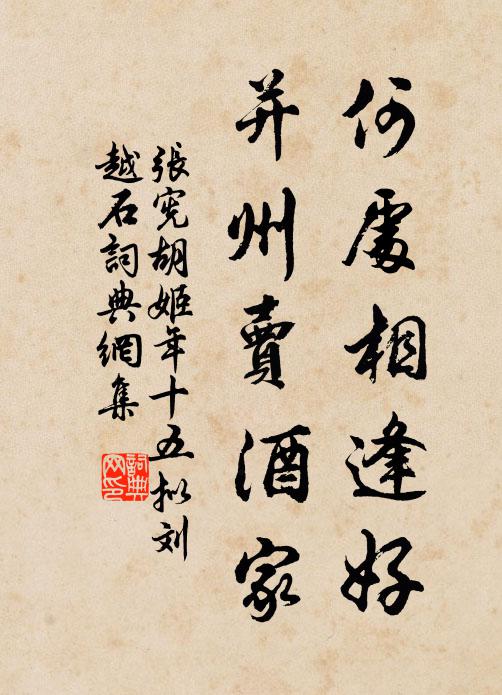 何處相逢好
并州賣酒家
張憲胡姬年十五拟刘
越石詞典網集
詞典
网印